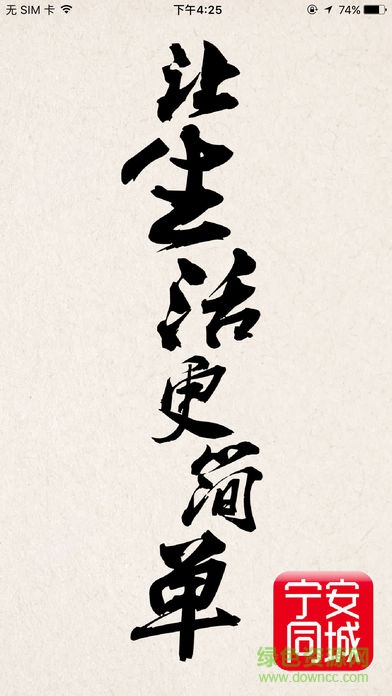 无 SIM 卡 下午4:25 74%
让生活更简单
宁安
同城
绿色资源网
www.downcc.com